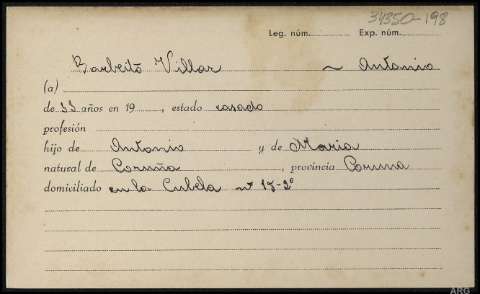 34350-198
Leg. núm. Exp. núm.
Barbeito Villar ~ Antonio
(a)
de 33 años en 19 , estado casado
profesión
hijo de Antonio y de Maria
natural de Coruña , provincia Coruna
domiciliado en la Cubela nº 17-2º
ARG